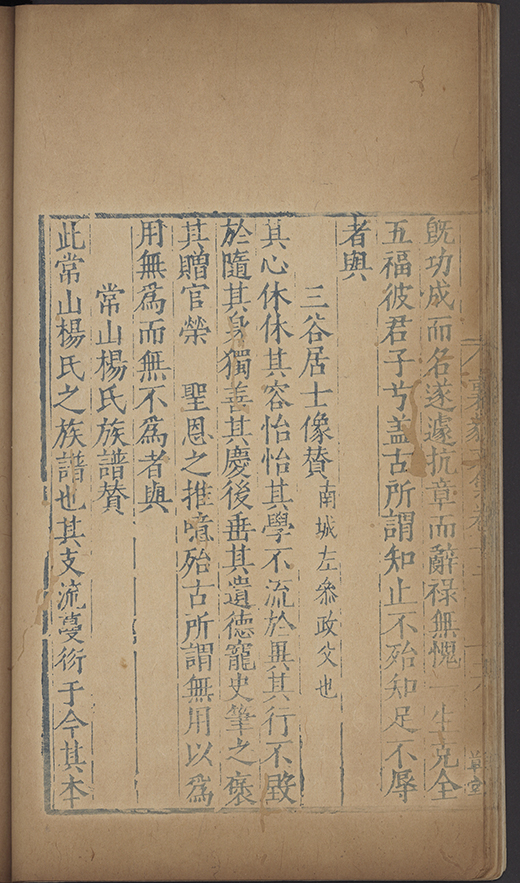 既功成而名遂遽抗章而辭祿無愧一生克全
五福彼君子兮盖古所謂知止不殆知足不辱
者與
三谷居士像賛南城左叅政父也
其心休休其容怡怡其學不流於異其行不毀
於隨其身獨善其慶後垂其遺德寵史筆之褒
其贈官榮 聖恩之推噫殆古所謂無用以爲
用無爲而無不爲者與
常山楊氏族譜賛
此常山楊氏之族譜也其支流蔓衍于今其本